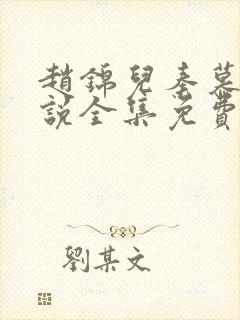 趙錦兒秦慕
說全集免費
劉某文